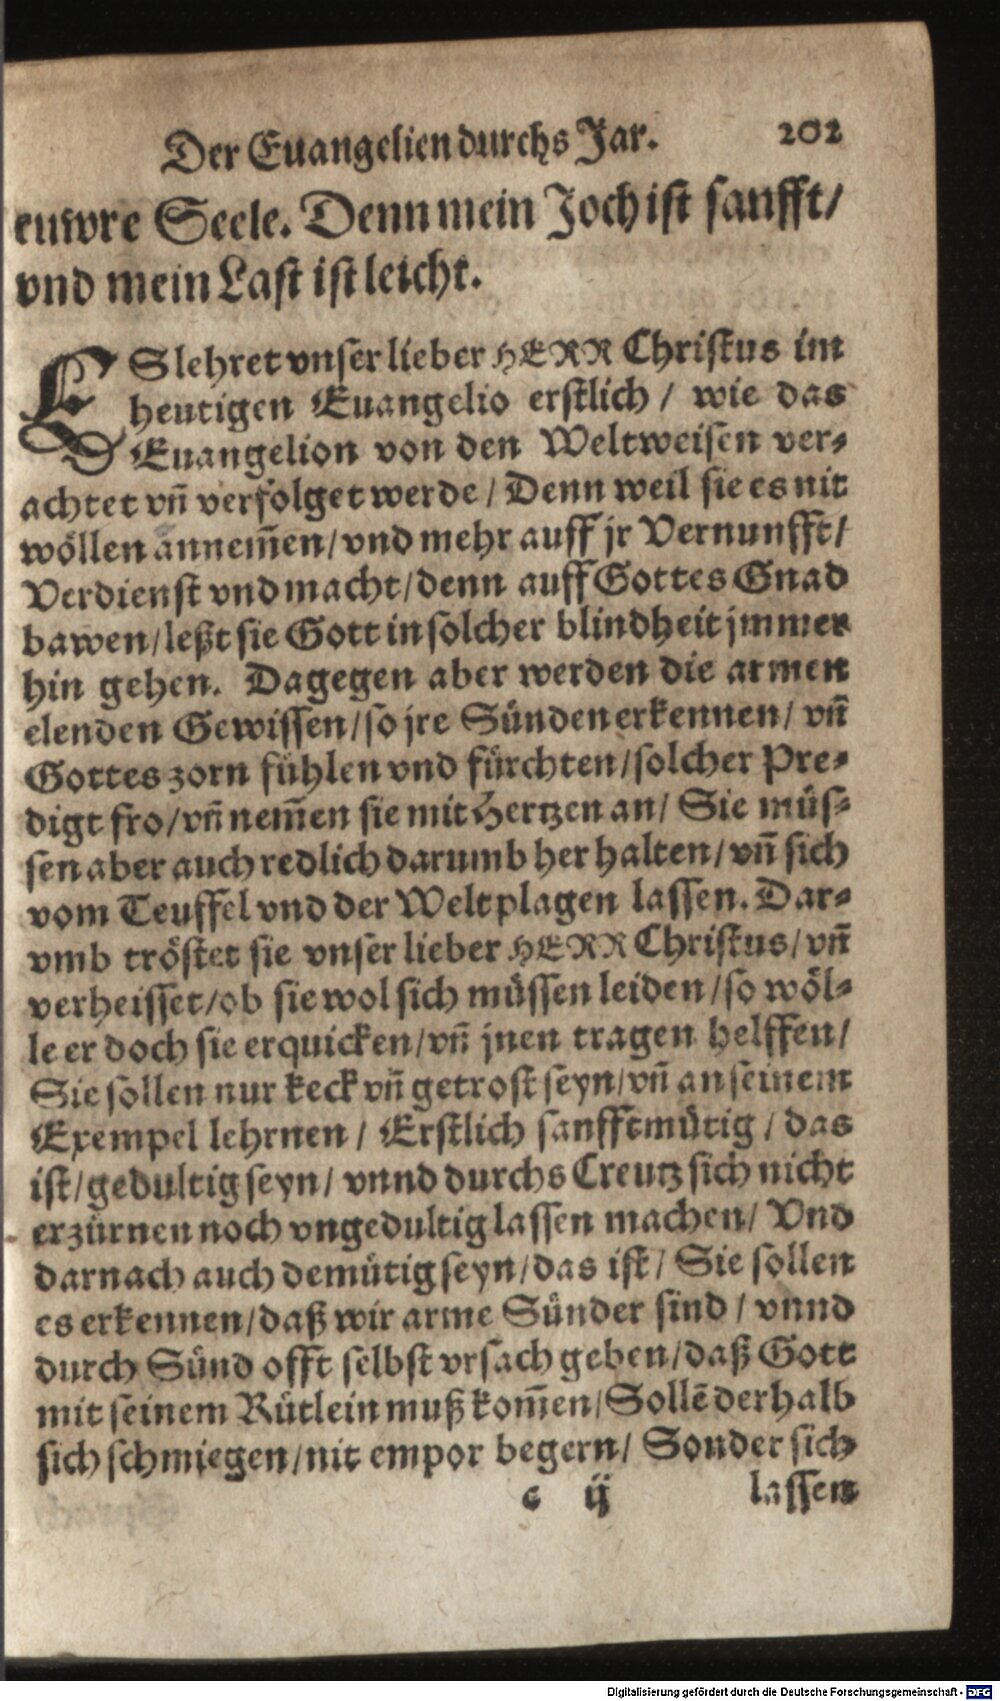 Der Euangelien durchs Jar. 202
euwre Seele. Denn mein Joch ist sanfft/
vnd mein Last ist leicht.
ES lehret vnser lieber HERR Christus im
heutigen Euangelio erstlich / wie das
Euangelion von den Weltweisen ver-
achtet vñ verfolget werde / Denn weil sie es nit
wöllen annem̃en/ vnd mehr auff jr Vernunfft/
Verdienst vnd macht/ denn auff Gottes Gnad
bawen/ leßt sie Gott in solcher blindheit jmmer
hin gehen. Dagegen aber werden die armen
elenden Gewissen/ so jre Sünden erkennen/ vñ
Gottes zorn fühlen vnd fürchten/ solcher Pre-
digt fro/ vñ nem̃en sie mit Hertzen an/ Sie müs-
sen aber auch redlich darumb her halten/ vñ sich
vom Teuffel vnd der Welt plagen lassen. Dar-
vmb tröstet sie vnser lieber HERR Christus/ vñ
verheisset/ ob sie wol sich müssen leiden/ so wöl-
le er doch sie erquicken/ vñ jnen tragen helffen/
Sie sollen nur keck vñ getrost seyn/ vñ an seinem
Exempel lehrnen / Erstlich sanfftmütig / das
ist/ gedultig seyn/ vnnd durchs Creutz sich nicht
erzürnen noch vngedultig lassen machen/ Vnd
darnach auch demütig seyn/ das ist/ Sie sollen
es erkennen/ daß wir arme Sünder sind / vnnd
durch Sünd offt selbst vrsach geben/ daß Gott
mit seinem Rütlein muß kom̃en/ Sollẽ derhalb
sich schmiegen/ nit empor begern/ Sonder sich
c ij lassen
Digitalisierung gefördert durch die Deutsche Forschungsgemeinschaft - DFG